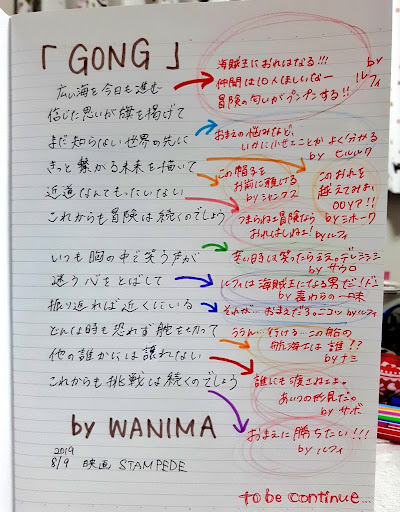 「GONG」
広い海を今日も進む
信じた思いが旗を掲げて
まだ知らない世界の先に
きっと繋がる未来を描いて
近道なんてもったいない
これからも冒険は続くのでしょう
いつも胸の中で笑う声が
迷う心をとばして
振り返れば近くにいる
どんな時も恐れず舵を切って
他の誰かには譲れない
これからも挑戦は続くのでしょう
by WANIMA
2019
8/9 映画 STAMPEDE
海賊王におれはなる!!!
by ルフィ
仲間は10人ほしいなー
冒険の匂いがプンプンする!!
おまえの悩みなど、
いかに小せェことかよく分かる
by ヒルルク
この帽子を
お前に預ける
by シャンクス
このおれを
越えてみよ
○○ア!!
by ミホーク
つまらねェ冒険なら
おれはしねェ! by ルフィ
苦い時は笑ったらええ。デレシシシ
by サウロ
ルフィは海賊王になる男だ!
by 麦わらの一味
それが…おまえだろ。ニコン by ルフィ
ううん…行ける…この船の
航海士は誰??
by ナミ
誰にも渡さねェよ。
あいつの形見だ。
by サボ
おまえに勝ちたい!!!
by ルフィ
to be continue...